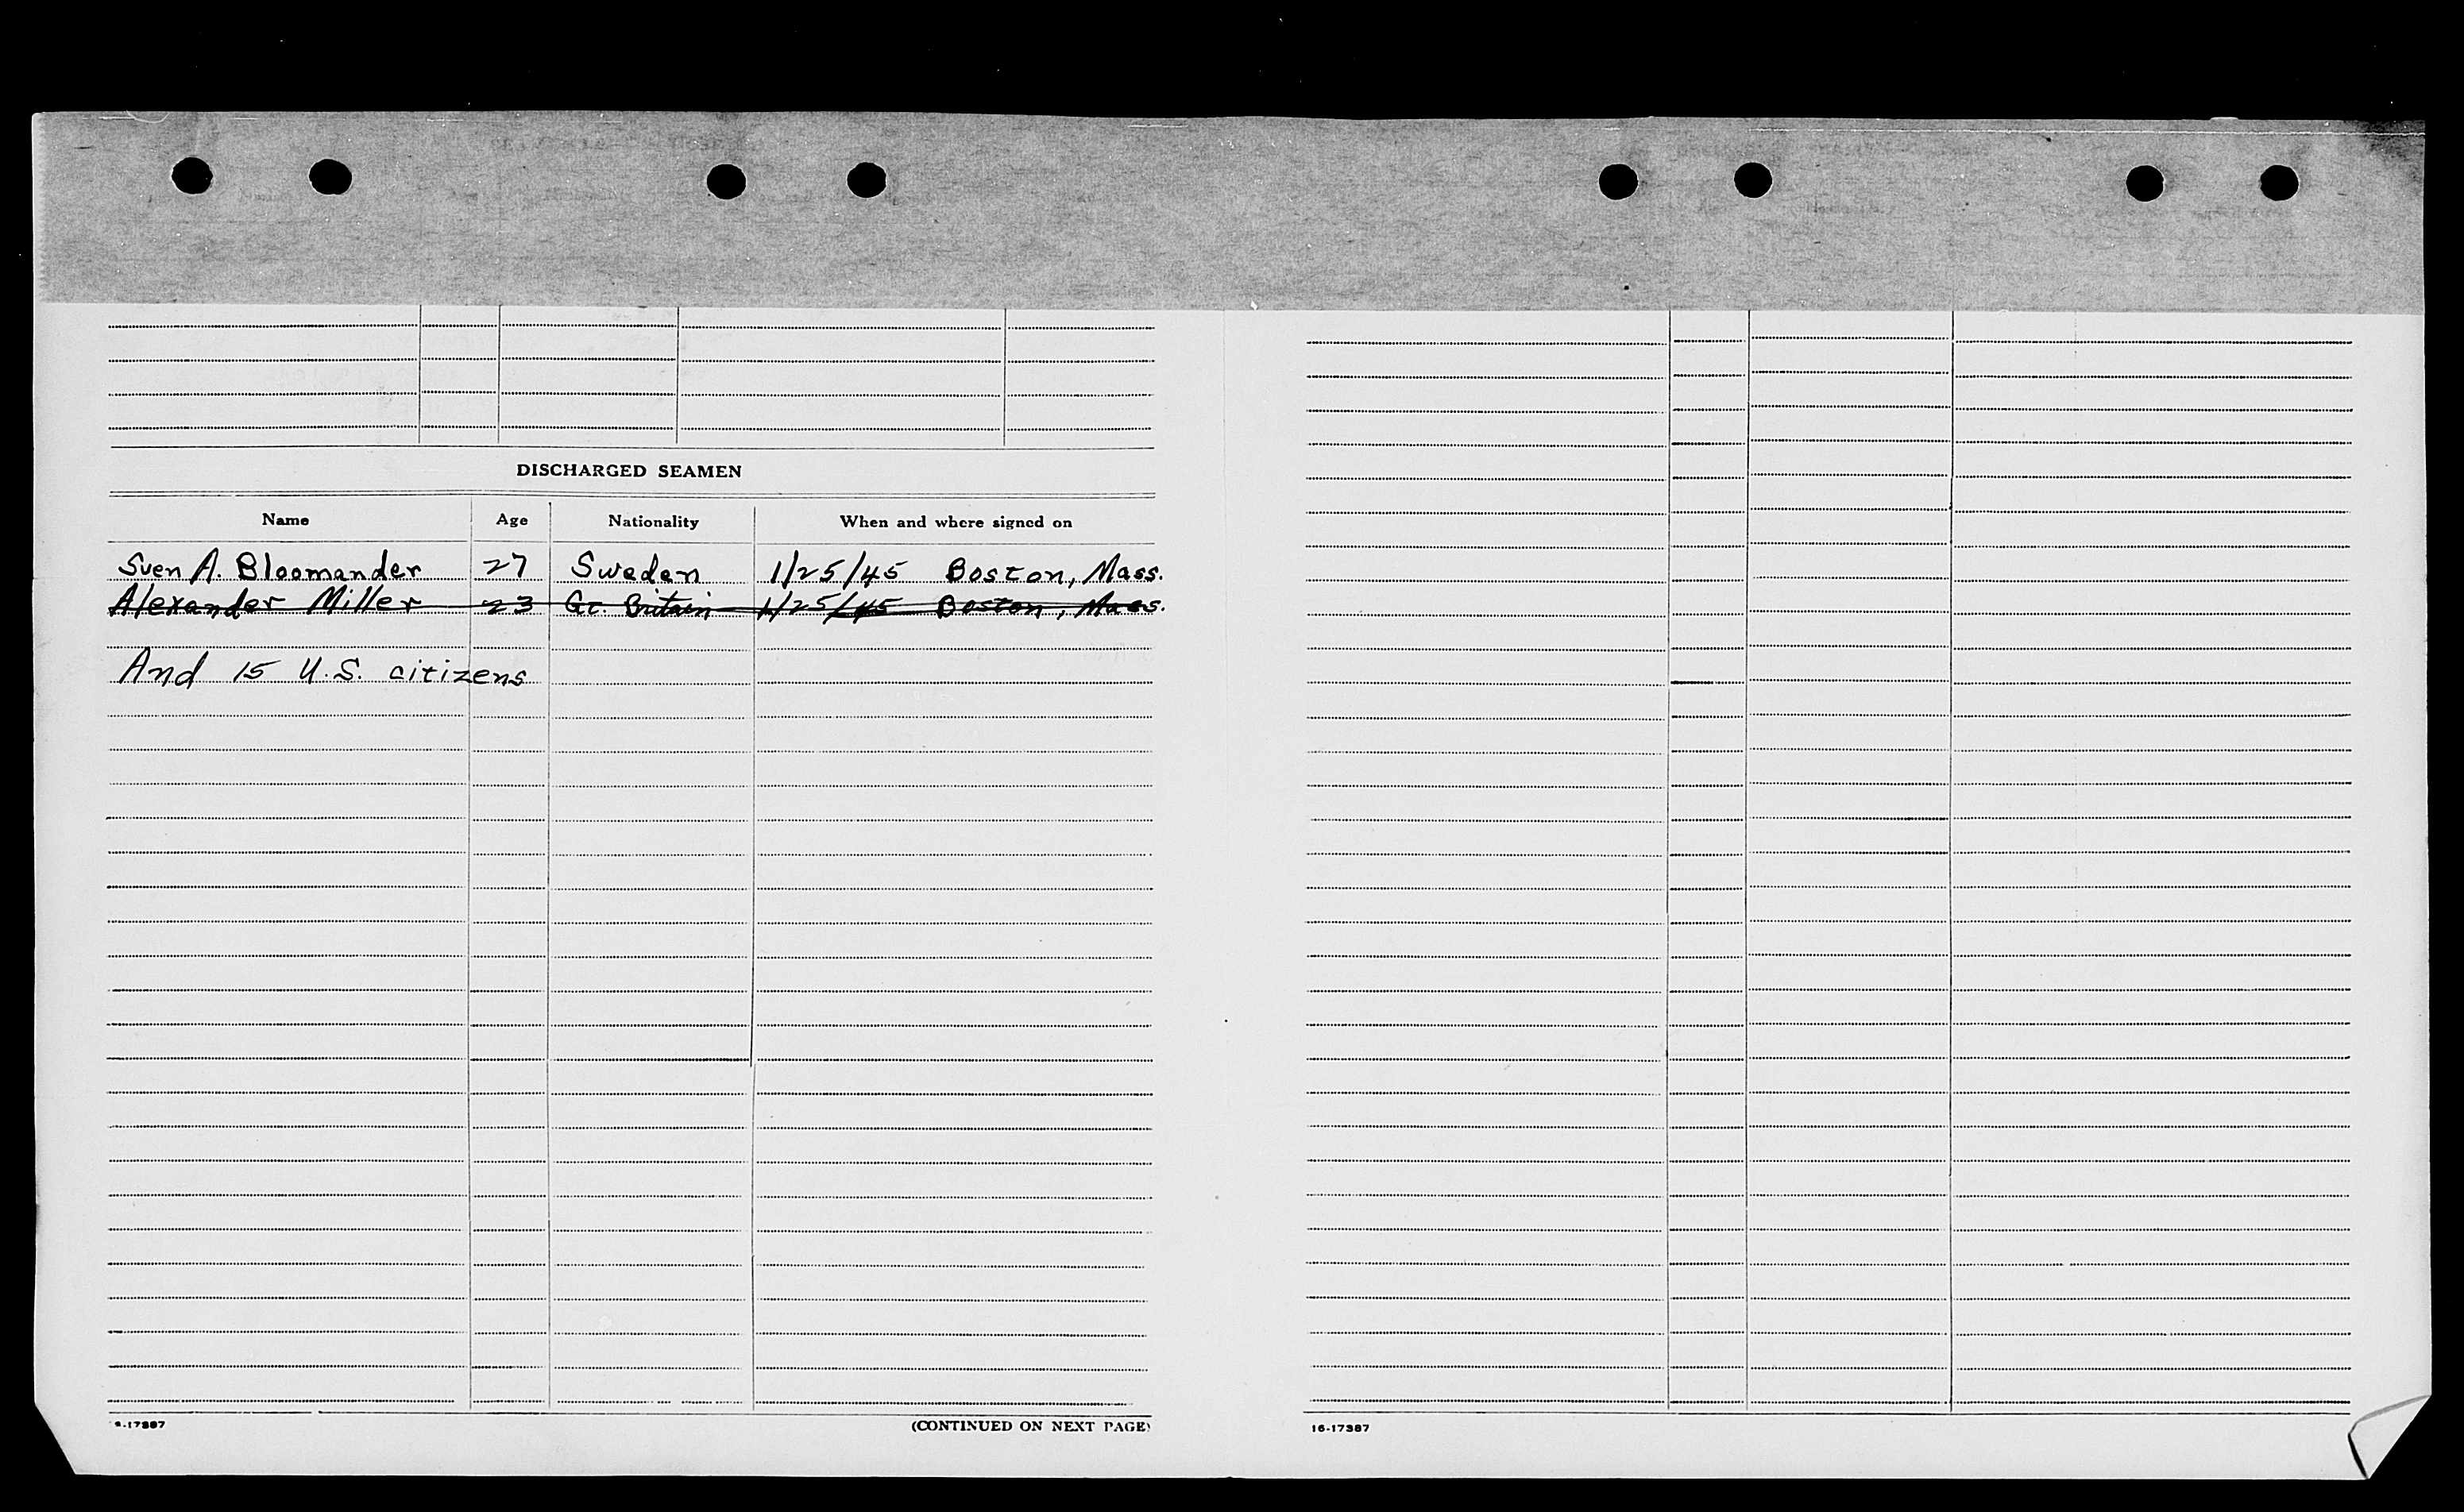 DISCHARGED SEAMEN
Name Age Nationality When and where signed on
Sven A. Bloomander 27 Sweden 1/25/45 Boston, Mass.
Alexander Miller 23 Gt. Britain 1/25/45 Boston, Mass.
And 15 U.S. citizens
(CONTINUED ON NEXT PAGE)
16-17387